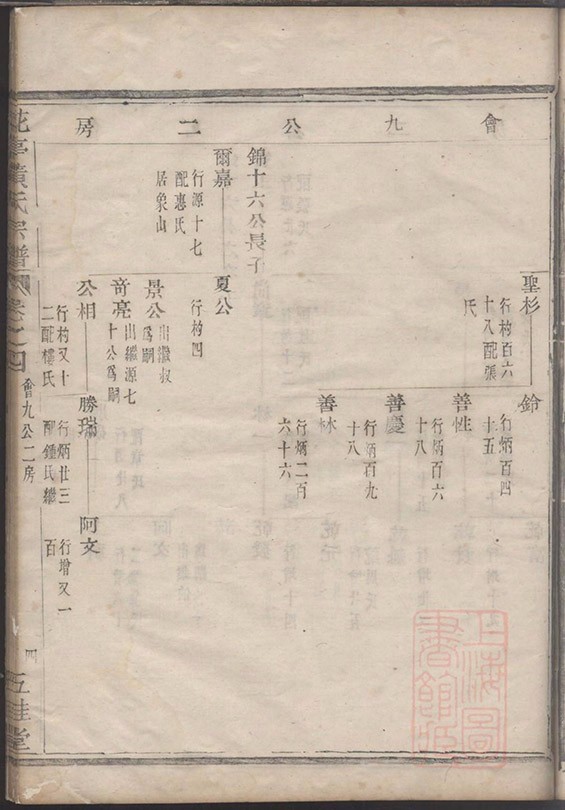 會九公二房
聖杉
行杓百六
十八配張
氏
鈴
行炳百四
十五
善性
行炳百六
十八
善慶
行炳百九
十八
善林
行炳二百
六十六
錦十六公長子
爾嘉
行源十七
配惠氏
居象山
夏公
行杓四
景公
出繼叔
爲嗣
奇亮
出繼源七
十公爲嗣
公相
行杓又十
二配樓氏
勝瑞
行炳廿三
配鍾氏繼
阿文
行增又一
百
花亭黃氏宗譜
卷之四
會九公二房
四
五桂堂
上海圖書館